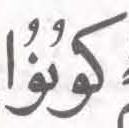 كونُوُا